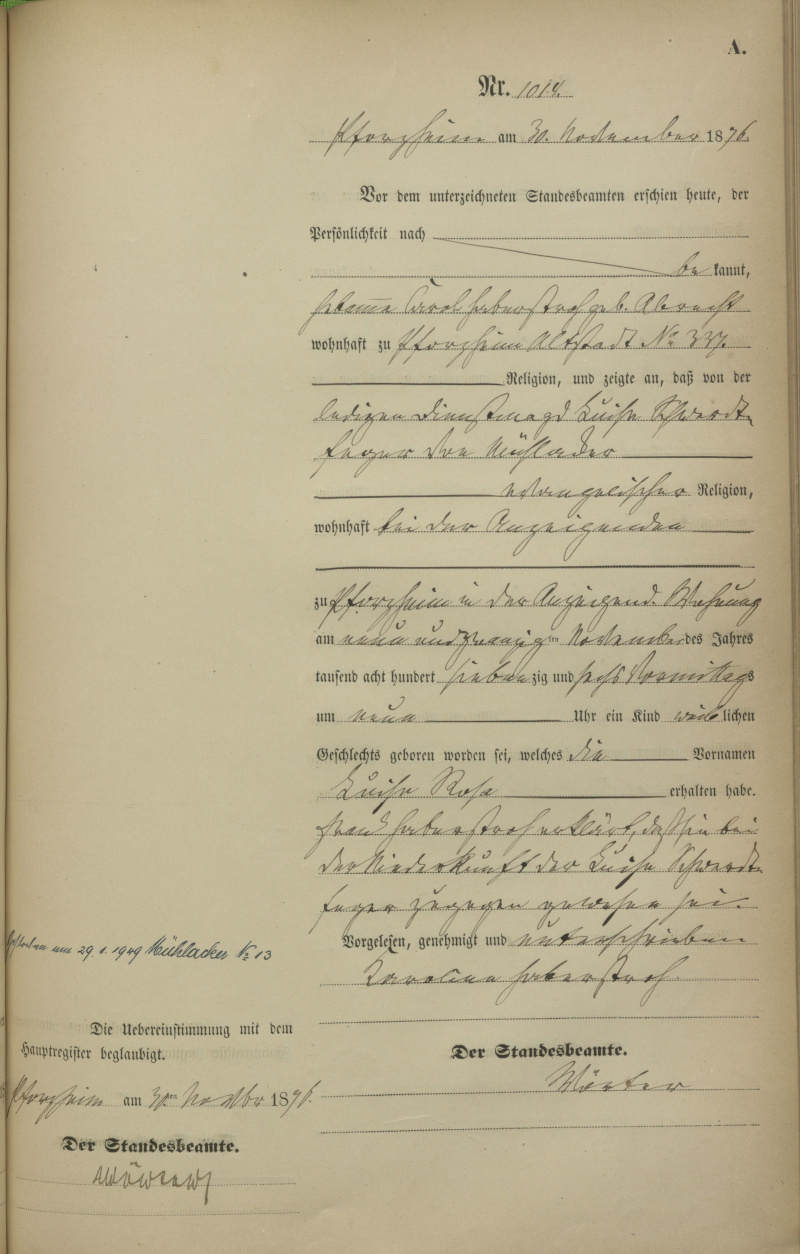 A.
Nr. 1014.
Pforzheim am 30. November 1876.
Vor dem unterzeichneten Standesbeamten erschien heute, der
Persönlichkeit nach
be kannt,
Haberstroh geb. Albrecht
wohnhaft zu Pforzheim Altstadt No
Religion, und zeigte an, daß von der
ledigen Dienstmagd Luise Schwerdt-
feger von Mühlacker
evangelischer Religion,
wohnhaft bei der Anzeigenden
zu Pforzheim in der Anzeigend. Wohnung
am neun und zwanzigten November des Jahres
tausend acht hundert siebenzig und sechs Vormittags
um neun Uhr ein Kind weiblichen
Geschlechts geboren worden sei, welches die Vornamen
Luise Rosa erhalten habe.
Haberstroh erklärt, daß sie bei
der Niederkunft der Luise Schwerdt-
feger zugegen gewesen sei.
Vorgelesen, genehmigt und unterschrieben
Karolina Haberstroh.
Der Standesbeamte.
Gestorben am 29.1.1949 Mühlacker Nr 13
Die Uebereinstimmung mit dem
Hauptregister beglaubigt.
Pforzheim am 30ten Novbr 1876.
Der Standesbeamte.